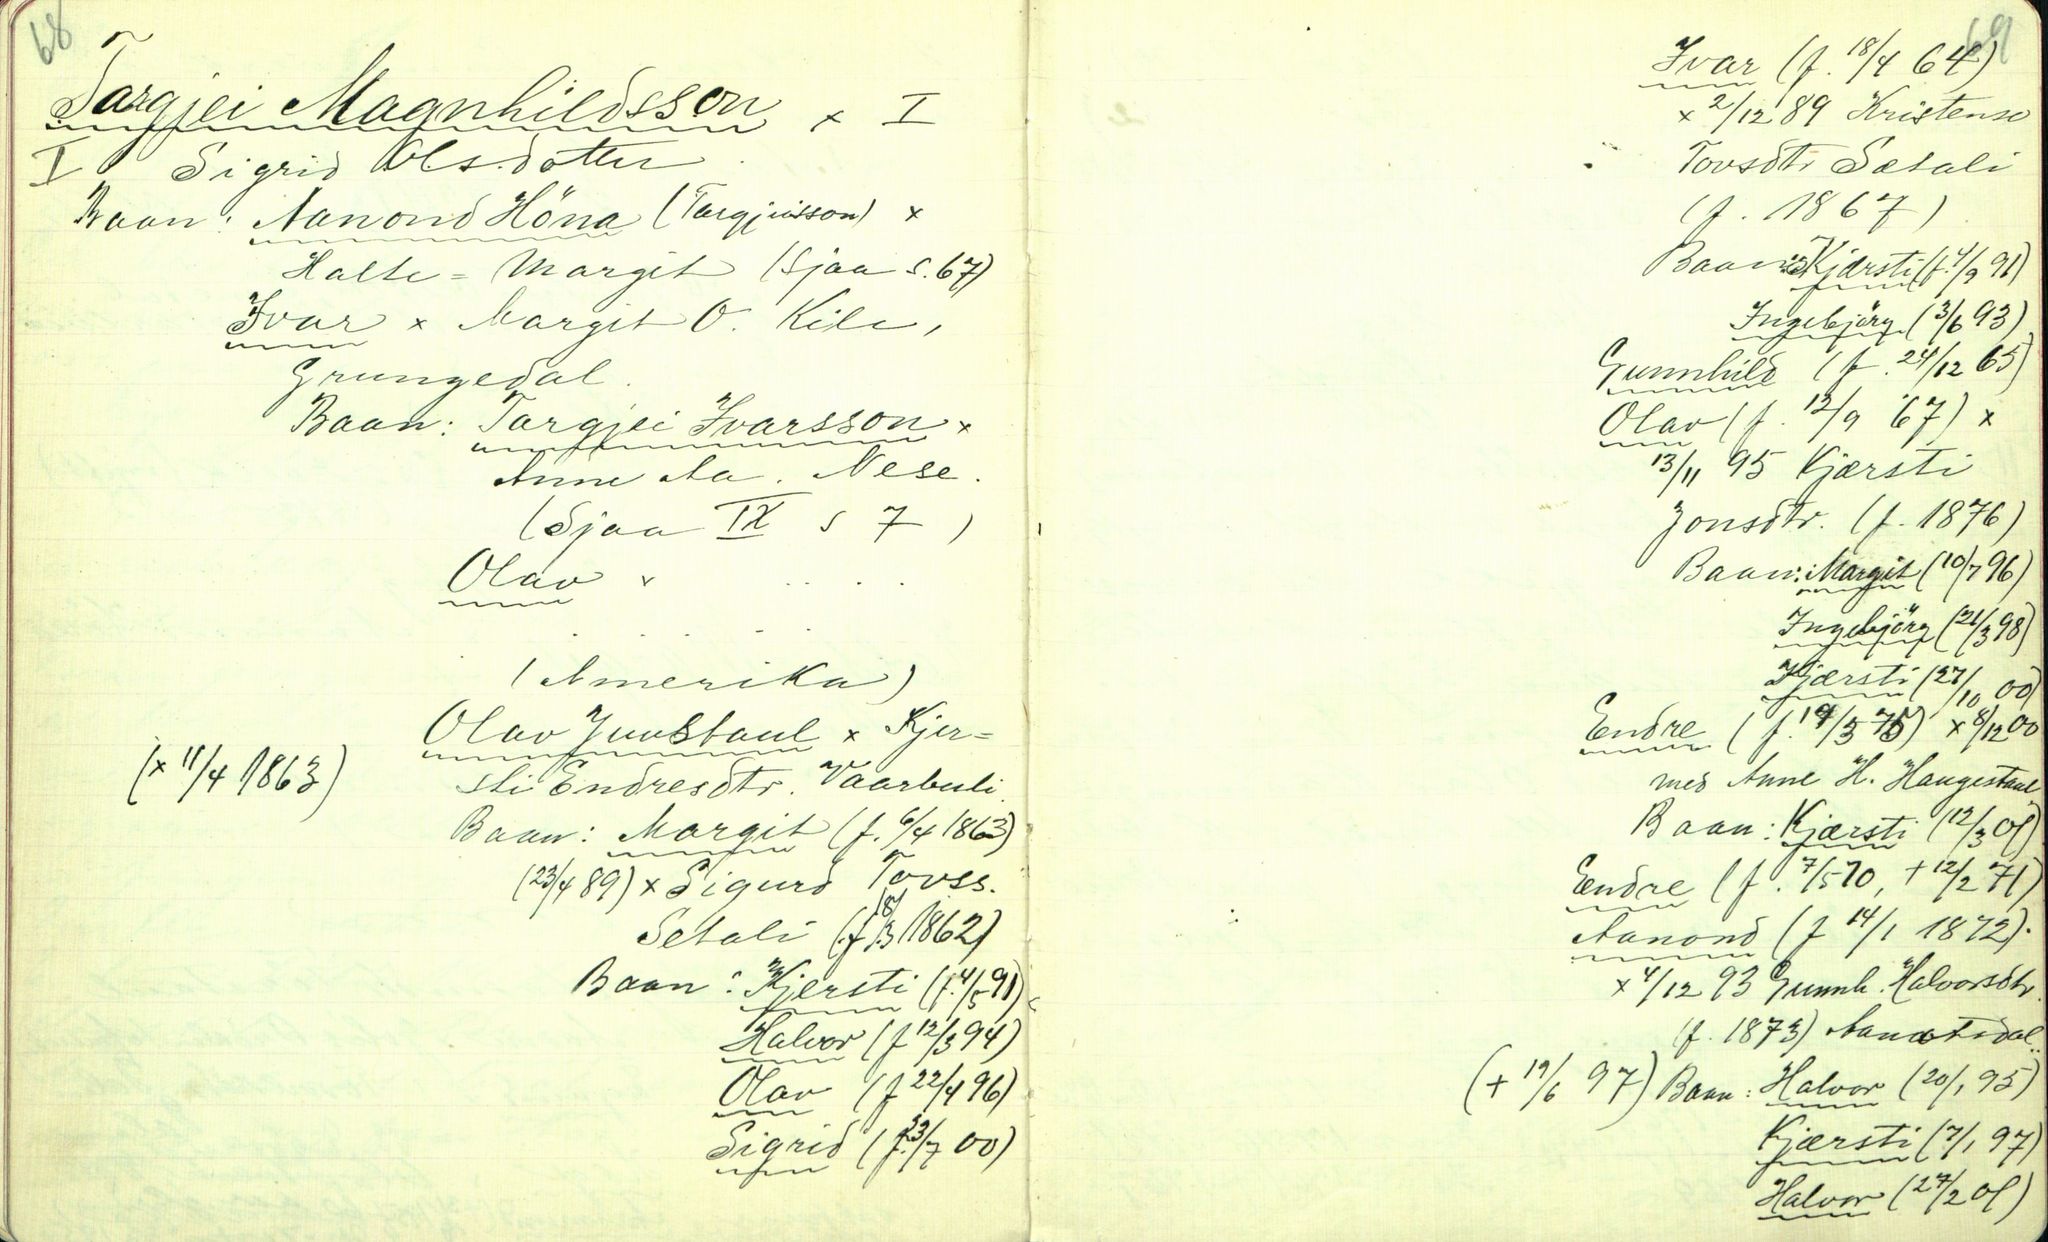 68
Targjei Magnhildsson × I
I Sigrid Olsdotter
Baan: Aanond Höna (Targjeisson) ×
Halte-Margit (Sjaa s. 67)
Ivar × Margit O. Kile,
Grungedal.
Baan: Targjei Ivarsson ×
Anne Aa. Nese.
(Sjaa IX s 7)
Olav × . . . .
. . . .
(Amerika)
Olav Juvstaul × Kjer-
(× 11/4 1863) sti Endresdtr. Vaarbuli.
Baan: Margit (f. 6/4 1863)
(23/4 89) × Sigurd Tovss.
Setali (f. 18/3 1862)
Baan: Kjersti (f. 4/5 91)
Halvor (f 12/3 94)
Olav (f 22/4 96)
Sigrid (f. 23/7 00)
69
Ivar (f. 18/4 64)
× 2/12 89 Kristense
Tovsdtr Setali
(f. 1867)
Baan: Kjærsti (f. 4/9 91)
Ingebjörg (3/6 93)
Gunnhild (f. 24/12 65)
Olav (f. 12/9 67) ×
13/11 95 Kjærsti
Jonsdtr. (f. 1876)
Baan: Margit (10/7 96)
Ingebjörg (21/3 98)
Kjærsti (27/10 00)
Endre (f. 19/3 75) × 8/12 00
med Anne H. Haugestaul
Baan: Kjærsti (12/3 01)
Endre (f. 7/5 70, + 12/2 71)
Aanond (f 14/1 1872).
× 4/12 93 Gunnh. Halvorsdtr.
(f. 1873)
(+ 19/6 97) Baan: Halvor (20/1 95)
Kjærsti (7/1 97)
Halvor (27/2 01)